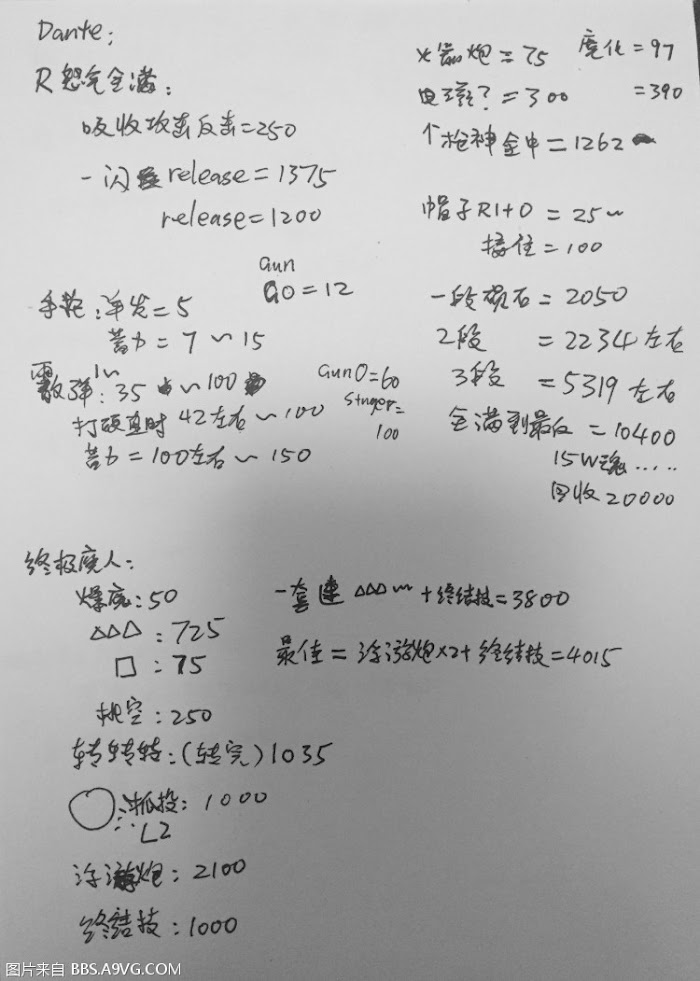 Dante:
R 怒气全满:
吸收攻击反击=250
一闪 release=1375
release=1200
手枪:单发=5
蓄力=7~15
Gun
GO=12
霰弹:35~100
打硬直时42左右~100
蓄力=100左右~150
GunO=60
Stinger=
100
火箭炮=75 魔化=97
电磁?=300 =390
个枪神全中=1262
帽子R1+O=25~
接住=100
一段陨石=2050
2段=2234左右
3段=5319左右
全满到最后=10400
15W魂.....
回收20000
终极魔人:
爆魔:50
△△△:725
□:75
挑空:250
转转转:(转完)1035
○抓投:1000
L2
浮游炮:2100
终结技:1000
一套连△△△~+终结技=3800
最佳=浮游炮×2+终结技=4015
图片来自 BBS.A9VG.COM